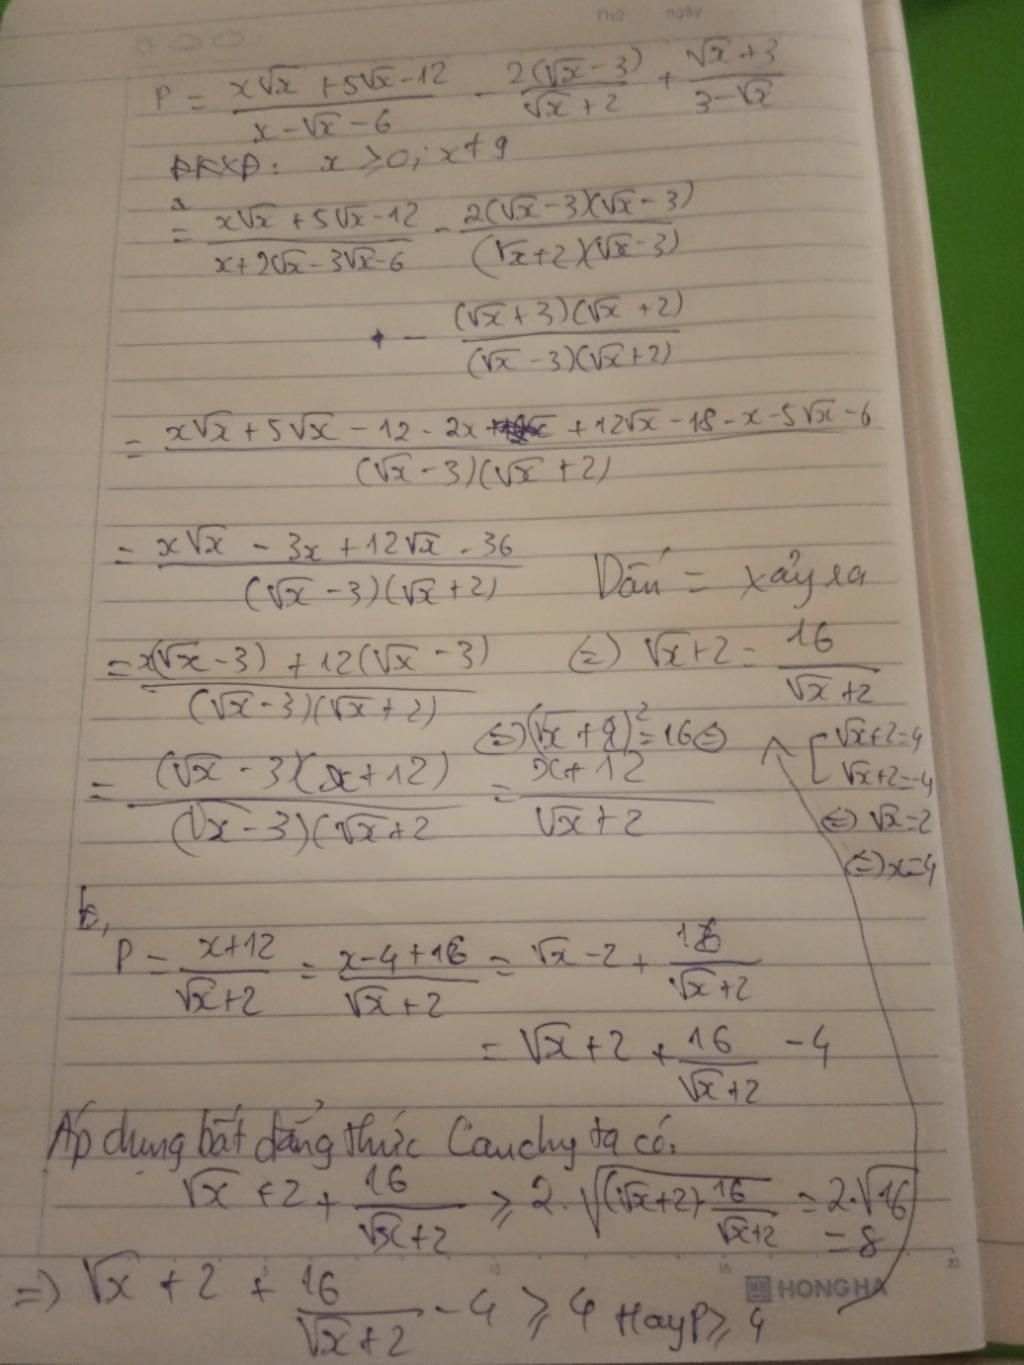 Thứ ngày
P = \frac{x√x + 5√x - 12}{x - √x - 6} - \frac{2(√x - 3)}{√x + 2} + \frac{√x + 3}{3 - √x}
ĐKXĐ: x ≥ 0; x ≠ 9
a
= \frac{x√x + 5√x - 12}{x + 2√x - 3√x - 6} - \frac{2(√x - 3)(√x - 3)}{(√x + 2)(√x - 3)}
- \frac{(√x + 3)(√x + 2)}{(√x - 3)(√x + 2)}
= \frac{x√x + 5√x - 12 - 2x + 12√x - 18 - x - 5√x - 6}{(√x - 3)(√x + 2)}
= \frac{x√x - 3x + 12√x - 36}{(√x - 3)(√x + 2)}
= \frac{x(√x - 3) + 12(√x - 3)}{(√x - 3)(√x + 2)}
= \frac{(√x - 3)(x + 12)}{(√x - 3)(√x + 2} = \frac{x + 12}{√x + 2}
Dấu = xảy ra
(=) √x + 2 = \frac{16}{√x + 2}
(=) (√x + 2)^2 = 16 (=)
[ √x + 2 = 4
√x + 2 = -4
(=) √x = 2
(=) x = 4
b,
P = \frac{x + 12}{√x + 2} = \frac{x - 4 + 16}{√x + 2} = √x - 2 + \frac{16}{√x + 2}
= √x + 2 + \frac{16}{√x + 2} - 4
Áp dụng bất đẳng thức Cauchy ta có:
√x + 2 + \frac{16}{√x + 2} ≥ 2.√{(√x + 2).\frac{16}{√x + 2}} = 2.√16
= 8
=> √x + 2 + \frac{16}{√x + 2} - 4 ≥ 4 Hay P ≥ 4
10 15 20
HONG HA